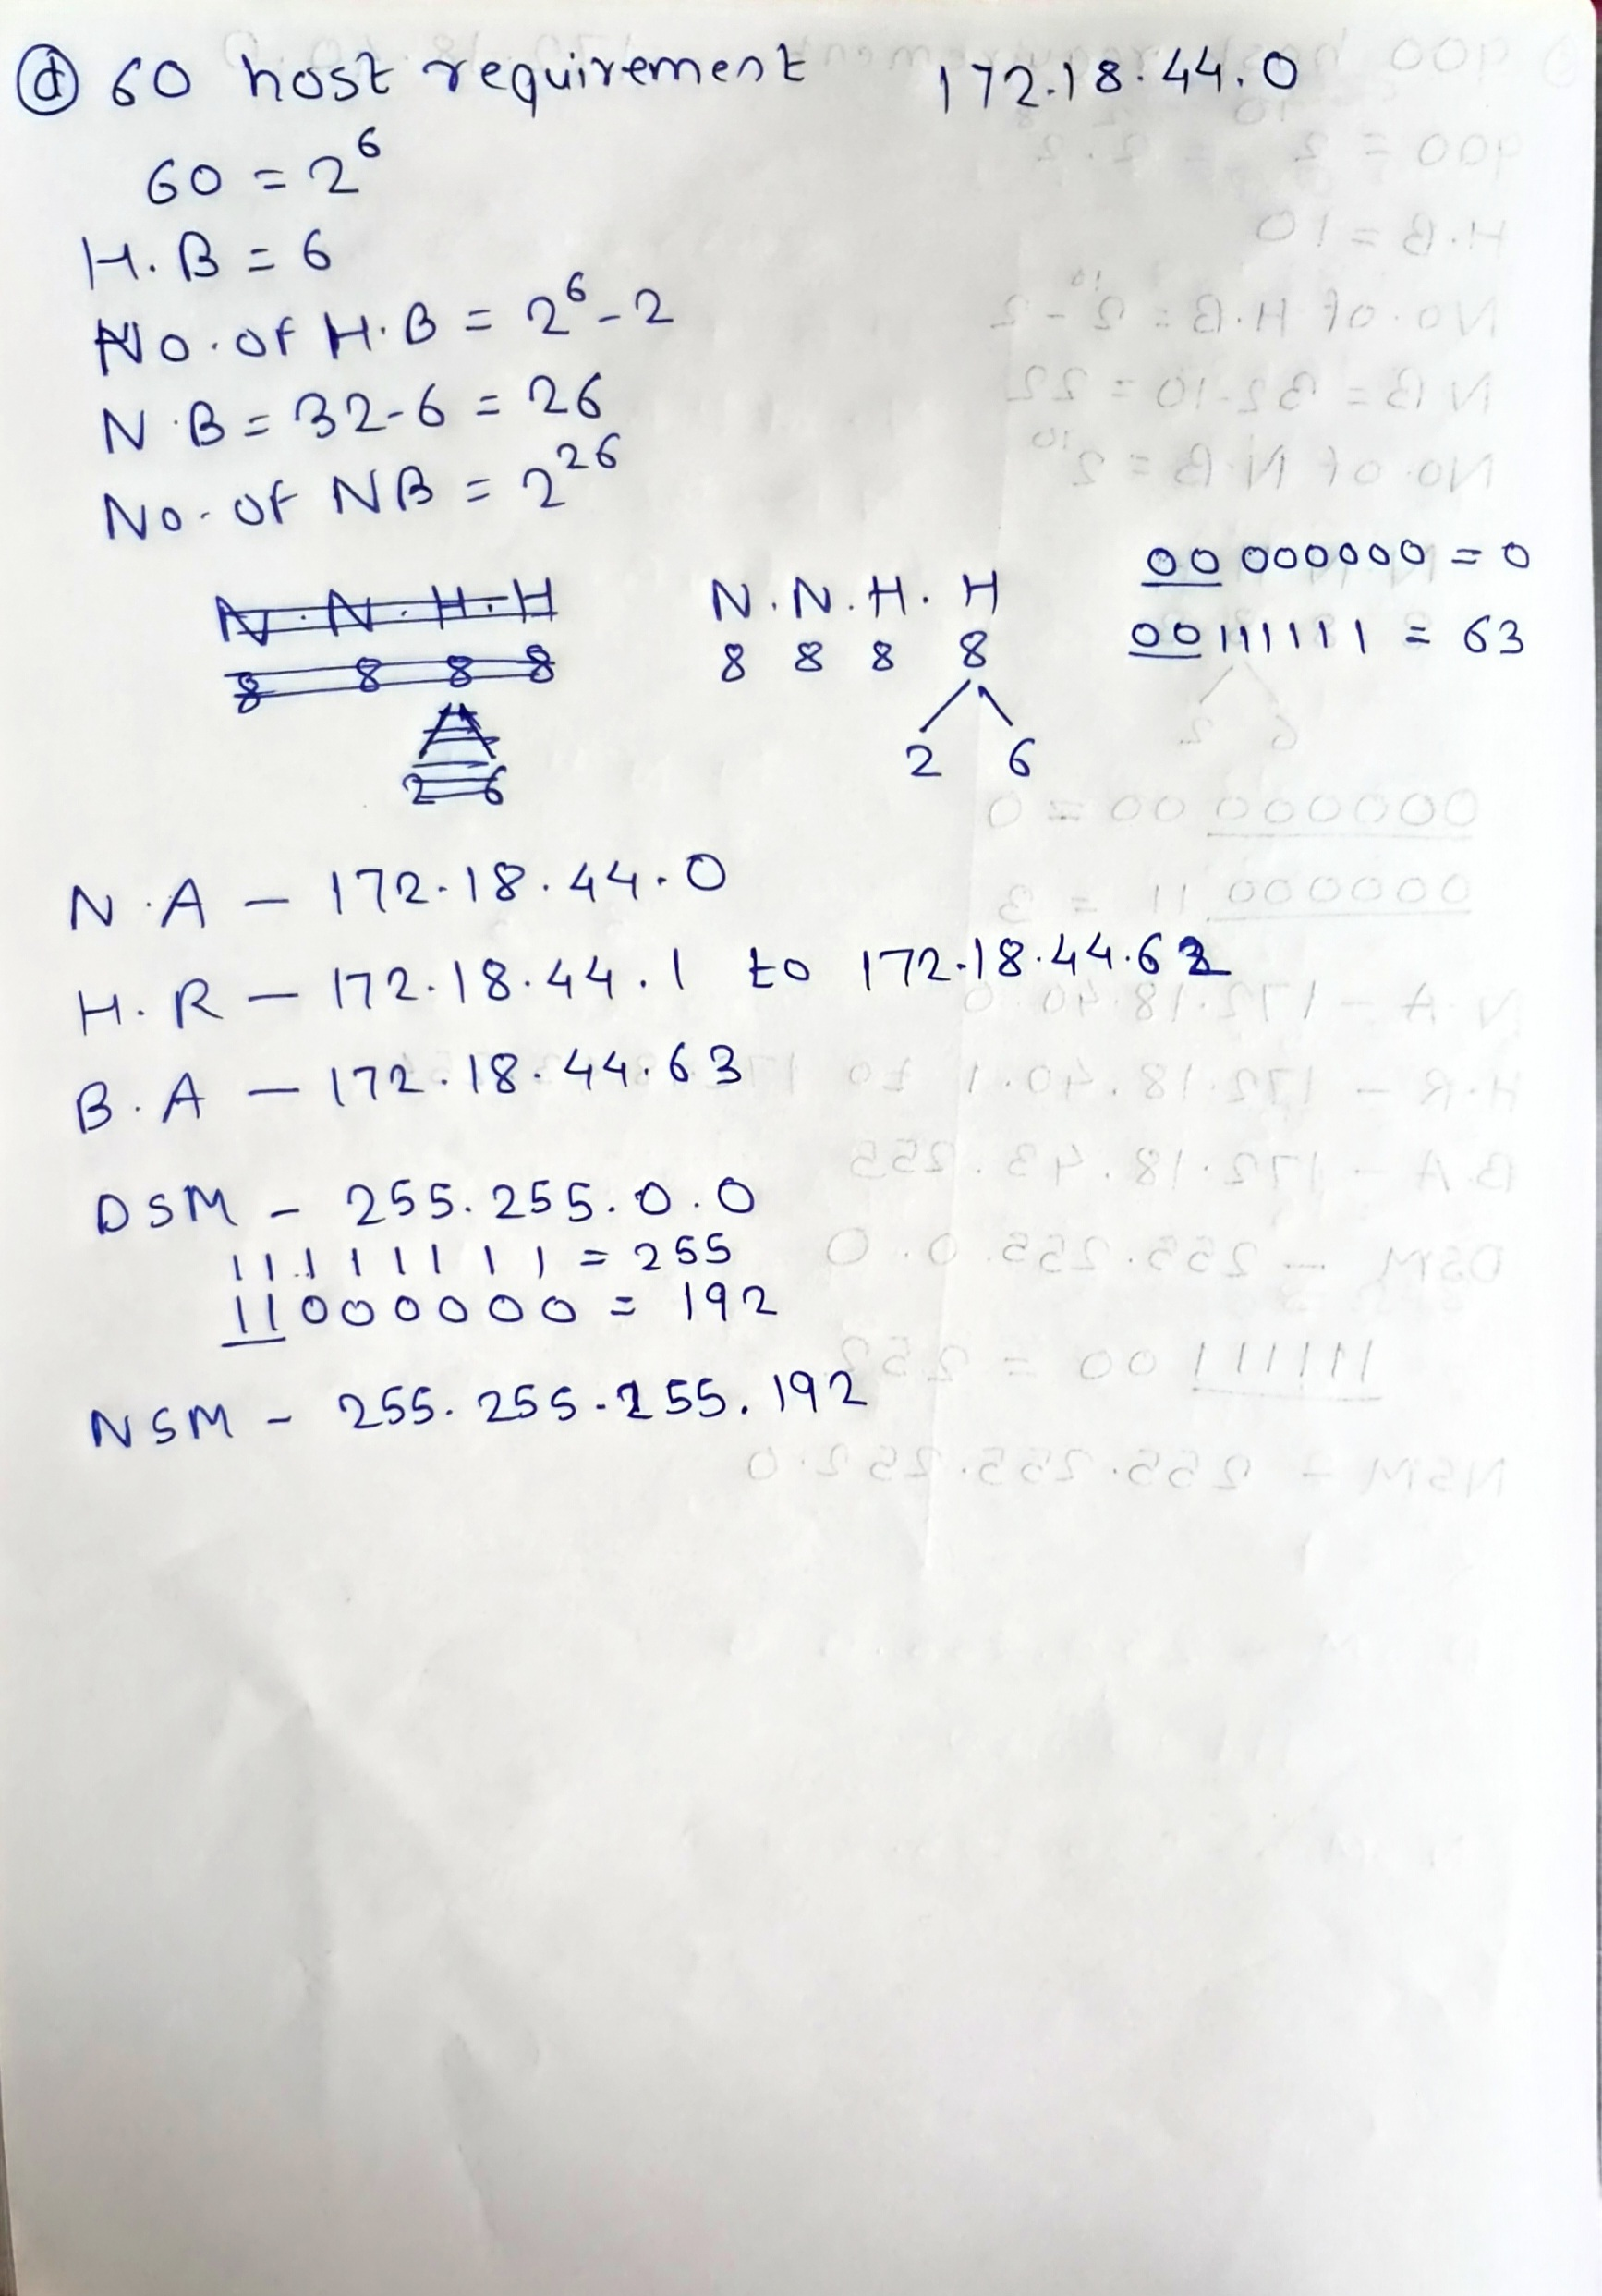 ⓓ 60 host requirement 172.18.44.0
60 = 2⁶
H.B = 6
No. of H.B = 2⁶-2
N.B = 32-6 = 26
No. of NB = 2²⁶
00 000000 = 0
N.N.H.H N.N.H.H
00111111 = 63
8 8 8 8 8 8 8 8
2 6 2 6
N.A - 172.18.44.0
H.R - 172.18.44.1 to 172.18.44.62
B.A - 172.18.44.63
DSM - 255.255.0.0
11111111 = 255
11000000 = 192
NSM - 255.255.255.192